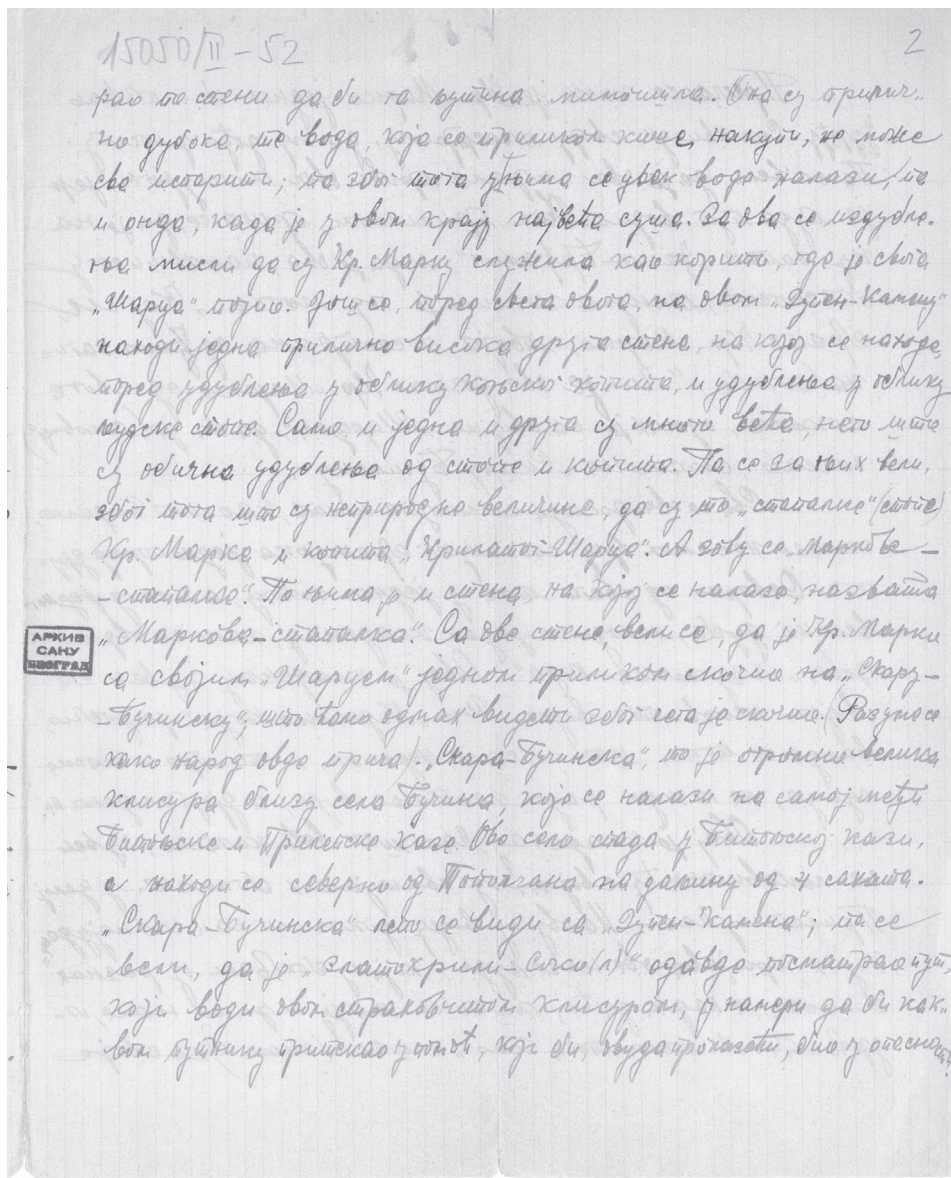 15050/II – 52
2
рао по стени да би га љутина миношила. Она су прилич-
но дубока, те вода, која се приликом кише, накупи, не може
сва испарити; па због тога у њима се увек вода налази, па
и онда, када је у овом крају највећа суша. За ова се издубље-
ња мисли да су Кр. Марку служила као корито, где је свога
„Шарца“ појио. Још се, поред свега овога, на овом „Дупен-Камену“
находи једна прилично висока друга стена, на којој се находе,
поред удубљења у облику коњског копита, и удубљења у облику
људске стопе. Само и једна и друга су много већа, него што
су обична удубљења од стопе и копита. Па се за њих вели,
због тога што су неприродне величине, да су то „стапалке“ (стопе)
Кр. Марка и копита „Крилатог-Шарца“. А зову се „Маркове –
– стапалке“. По њима је и стена, на којој се налазе, назвата
„Маркова – стапалка“. Са ове стене, веле се, да је Кр. Марко
АРХИВ
САНУ
БЕОГРАД
са својим „Шарцем“ једном приликом скочио на „Скару –
– Бучинску“; што ћемо одмах видети због чега је скочио. Разуме се
како народ овде прича. – „Скара – Бучинска“, то је огромно велика
клисура близу села Бучина, које се налази на самој међи
Битољске и Прилепске казе. Ово село спада у Битољској кази,
а находи се северно од Тополчана на даљину од 4 сахата.
„Скара – Бучинска“ лепо се види са „Дупен-Камена“; па се
вели, да је „златокрили – Соко(л)“ одавде посматрао пут,
који води овом страховитом клисуром, у намери да би как-
вом путнику притекао у помоћ, који би, овуда пролазећи, био у опасности.